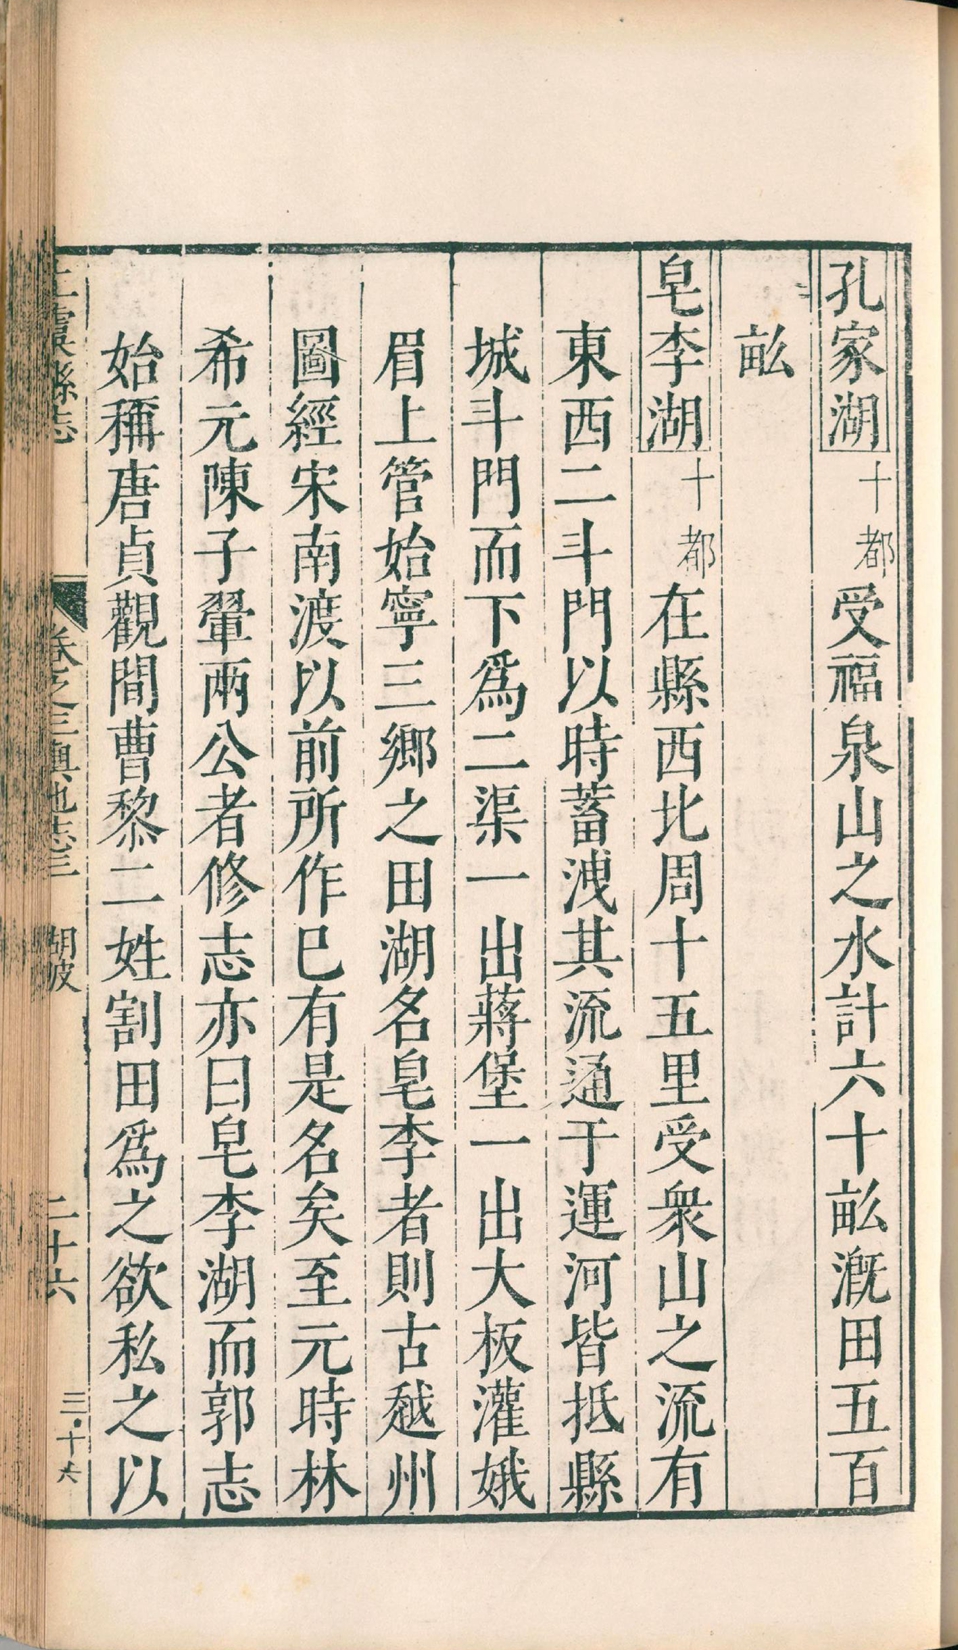 孔家湖十都受福泉山之水計六十畝漑田五百
畝
皂李湖十都在縣西北周十五里受衆山之流有
東西二斗門以時蓄洩其流通于運河皆抵縣
城斗門而下爲二渠一出蔣堡一出大板灌娥
眉上管始寧三鄉之田湖名皂李者則古越州
圖經宋南渡以前所作巳有是名矣至元時林
希元陳子翬兩公者修志亦曰皂李湖而郭志
始稱唐貞觀間曹黎二姓割田爲之欲私之以
上虞縣志 卷之三輿地志三 湖陂 二十六 三·十六